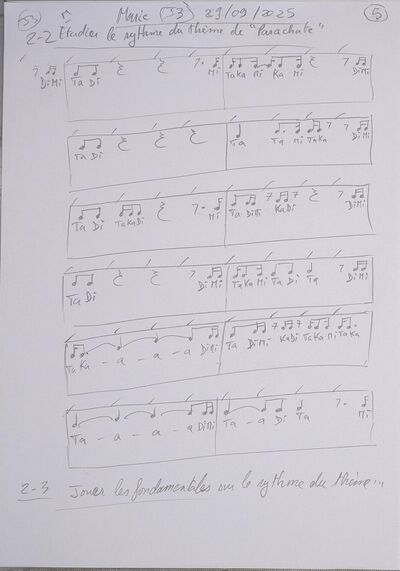 Marie J3 29/09/2025 5
2-2 Etudier le rythme du thème de "Parachute"
DiMi Ta Di Mi TaKa Mi Ka Mi DiMi
Ta Di Ta Ta Mi TaKa DiMi
Ta Di TaKaDi Mi Ta DiMi KaDi DiMi
Ta Di DiMi TaKa Mi Ta Di Ta DiMi
TaKa - a - a - a DiMi Ta DiMi KaDi TaKa Mi TaKa
Ta - a - a - a DiMi Ta - a Di Ta Mi
2-3 Jouer les fondamentales sur le rythme du thème...